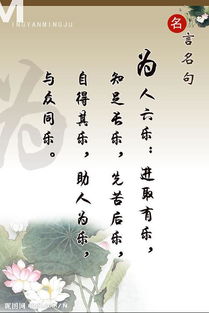 M
INGYANMINGJU
名言名句
为人六乐：进取有乐，
知足长乐，先苦后乐，
自得其乐，助人为乐，
与众同乐。
为
昵图网